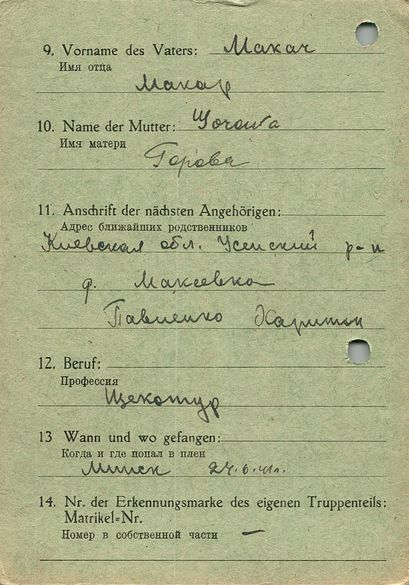 9. Vorname des Vaters: Макач
Имя отца
Макар
10. Name der Mutter:
Имя матери
Горова
11. Anschrift der nächsten Angehörigen:
Адрес ближайших родственников
Киевская обл. р-н
д. Максевка
Павленко Харитон
12. Beruf:
Профессия
Щекотур
13 Wann und wo gefangen:
Когда и где попал в плен
Минск 24.6.41г.
14. Nr. der Erkennungsmarke des eigenen Truppenteils:
Matrikel=Nr.
Номер в собственной части —